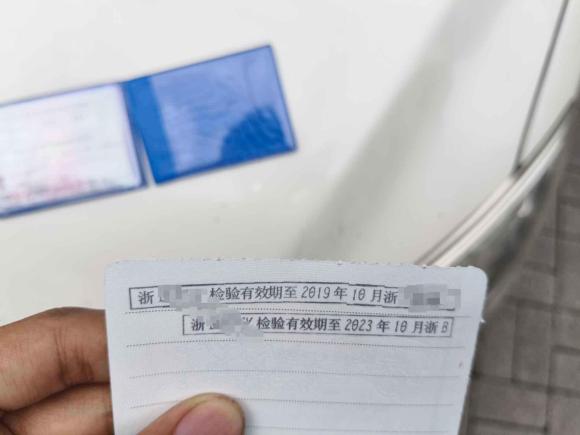 浙 检验有效期至2019年10月浙
浙 检验有效期至2023年10月浙B